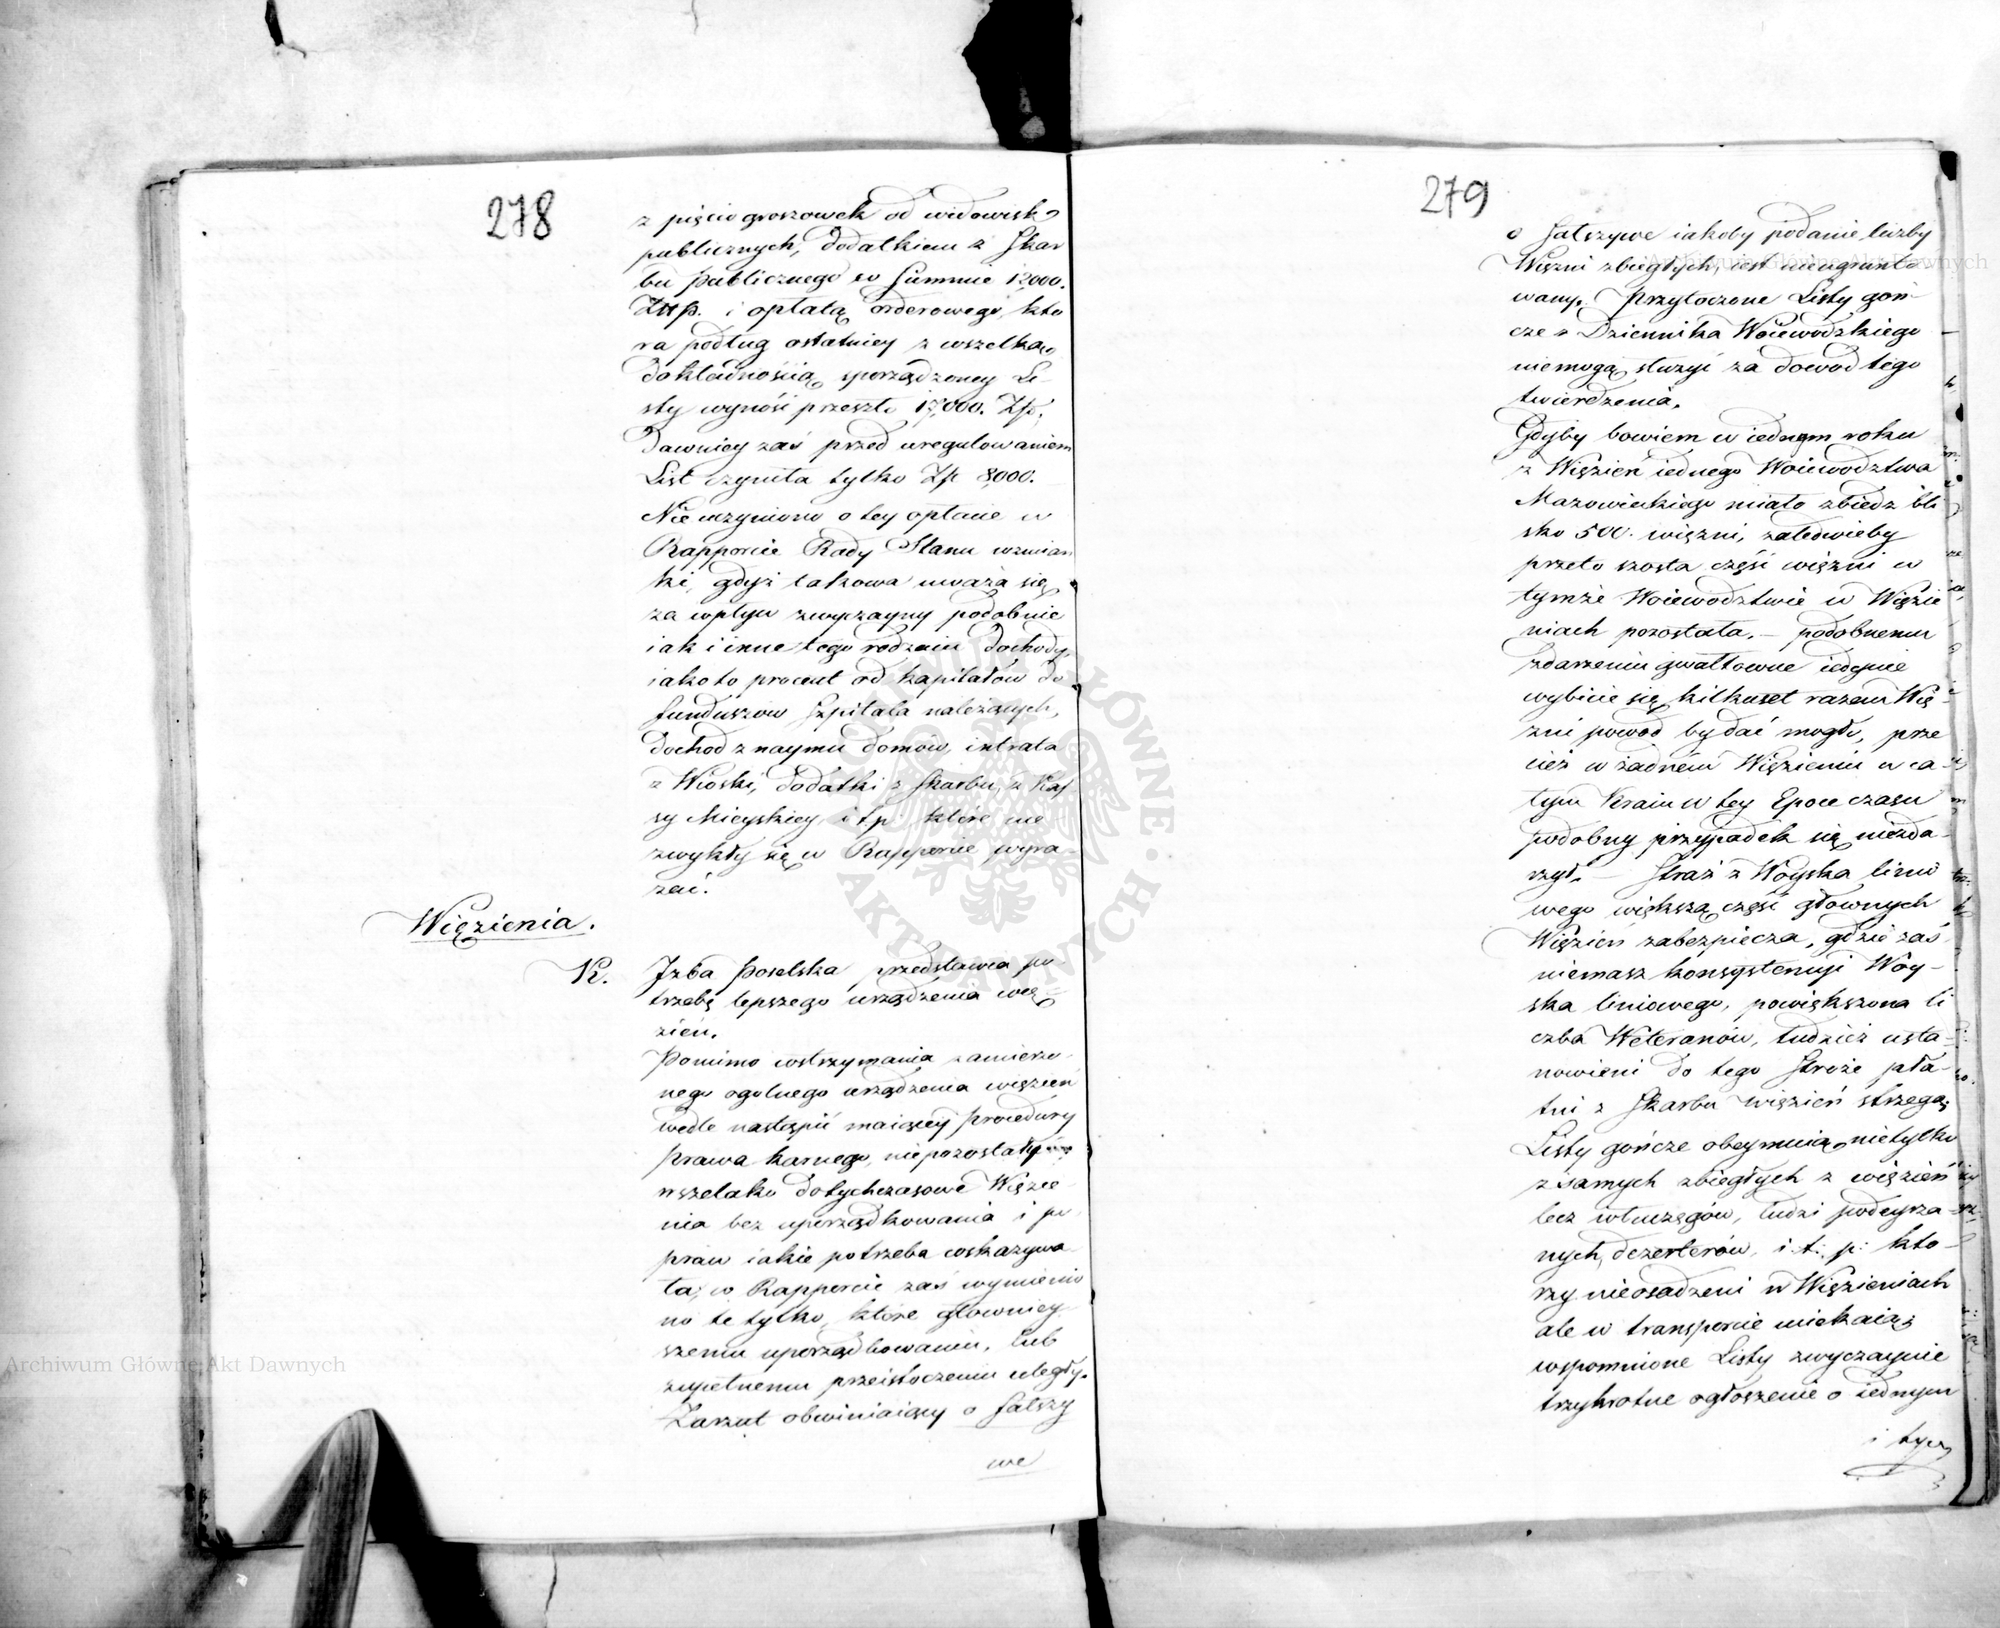 278
z pięcio groszowek od widowisk
publicznych, dodatkiem z Skar
bu publicznego w Summie 12,000.
Złtp. i opłatą orderowego, kto
ra podług ostatniey z wszelką
dokładnością sporządzoney Li-
sty wynosi przeszło 17,000. Złp.
Dawniey zaś przed uregulowaniem
List czyniła tylko Zł 8,000.
Nie uczyniono o tey opłacie w
Rapporcie Rady Stanu wzmian
ki, gdyż takowa uważa się
za wpływ zwyczayny podobnie
iak i inne tego rodzaiu dochody,
iako to procent od kapitałów do
funduszow Szpitala należących,
dochod z naymu domów, intrata
z Wioski, dodatki z Skarbu, z Kas
sy Mieyskiey i t.p. które nie
zwykły się w Rapporcie wyra-
żać.
Więzienia.
K. Izba Poselska przedstawia po
trzebę lepszego urządzenia wię-
zień.
Pomimo wstrzymania zamierzo
nego ogolnego urządzenia więzień
wedle nastąpić maiącey procedury
prawa karnego, niepozostały
wszelako dotychczasowe Więzie
nia bez uporządkowania i po
praw iakie potrzeba wskazywa
ła, w Rapporcie zaś wymienio
no te tylko, które głowniey
szemu uporządkowaniu, lub
zupełnemu przeistoczeniu uległy.
Zarzut obwiniaiący o fałszy
we
279
o fałszywe iakoby podanie liczby
Więźni zbiegłych, iest nieugrunto
wany. Przytoczone Listy goń-
cze z Dziennika Woiewodzkiego
niemogą służyć za dowod tego
twierdzenia.
Gdyby bowiem w iednym roku
z Więzień iednego Woiewodztwa
Mazowieckiego miało zbiedz bli
sko 500. więźni, zaledwieby
przeto szosta część więźni w
tymże Woiewodztwie w Więzie
niach pozostała. — podobnemu
zdarzeniu gwałtowne iedynie
wybicie się kilkuset razem Wię-
źni powod by dać mogło, prze
cież w żadnem Więzieniu w ca-
łym Kraiu w tey Epoce czasu
podobny przypadek się niezda-
rzył. — Straż z Woyska linio
wego większą część głownych
Więzień zabezpiecza, gdzie zaś
niemasz konsystencyi Woy-
ska liniowego, powiększona li
czba Weteranów, tudzież usta-
nowieni do tego Stroże pła-
tni z Skarbu więzień strzegą;
Listy gończe obeymuią nietylko
z samych zbiegłych z więzień
lecz włoczęgów, ludzi podeyrza-
nych, dezerterów, i. t. p: kto-
rzy nieosadzeni w Więzieniach
ale w transporcie uciekaią;
wspomnione Listy zwyczaynie
trzykrotne ogłoszenie o iednym
i tym
Archiwum Główne Akt Dawnych
Archiwum Główne Akt Dawnych